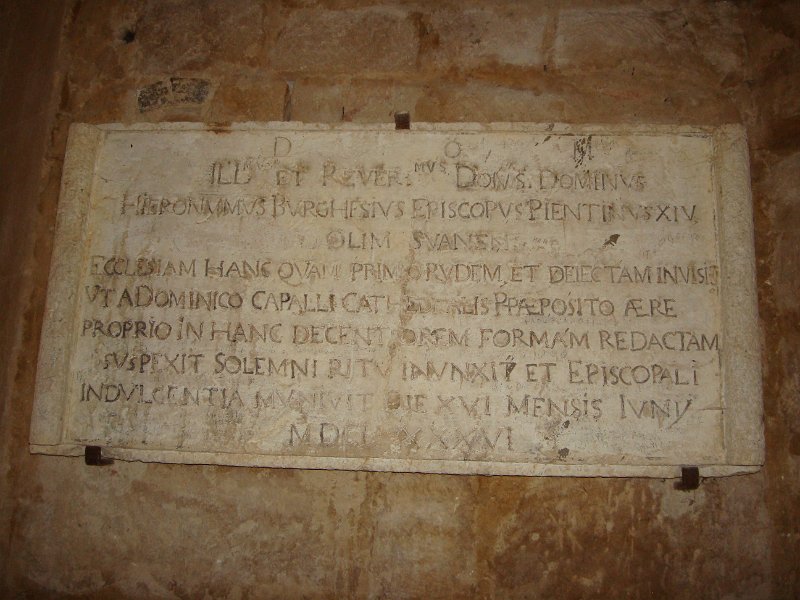 D O M
ILL^MUS ET REVER.^MVS DOÑS. DOMINVS
HIERONYMUS BURGHESIVS EPISCOPVS PIENTINVS XIV
OLIM SVANENSIS
ECCLESIAM HANC QVAM PRIMO RVDEM, ET DEIECTAM INVISIT
VT A DOMINICO CAPALLI CATHEDRALIS PRÆPOSITO ÆRE
PROPRIO IN HANC DECENTIOREM FORMAM REDACTAM
SVSPEXIT SOLEMNI RITV INVNXIT ET EPISCOPALI
INDVLGENTIA MVNIVIT DIE XVI MENSIS IVNIJ